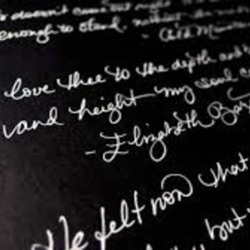 doesn't
enough to stand, without the
love thee to the depth and
and height my soul
- Elizabeth
He felt now that
but